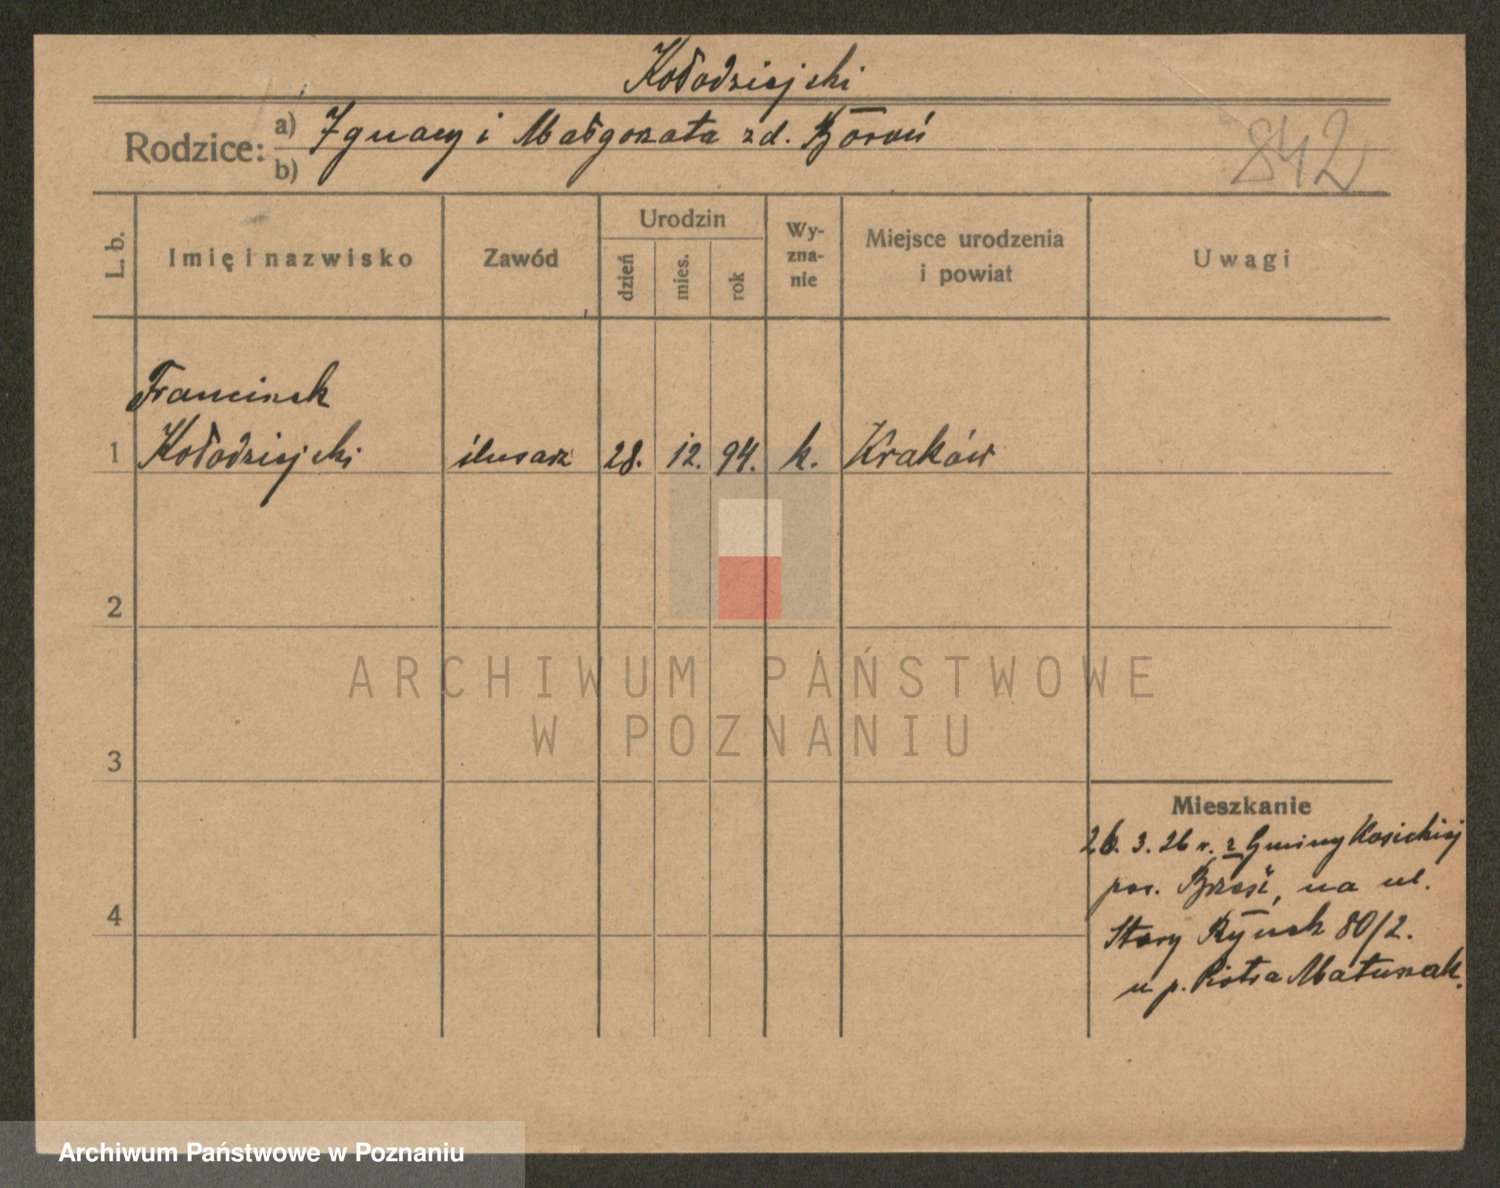 Kołodziejski
Rodzice: a) Ignacy i Małgorzata zd. Boroń
b)
842
L. b.
Imię i nazwisko
Zawód
Urodzin
dzień
mies.
rok
Wy-
zna-
nie
Miejsce urodzenia
i powiat
Uwagi
Franciszek
1 Kołodziejski ślusarz 28. 12. 94. k. Kraków
2
3
4
Mieszkanie
26. 3. 26 r. z Gminy
pow. na ul.
Stary Rynek 80/2.
u p. Piotra Matuszak.
ARCHIWUM PAŃSTWOWE
W POZNANIU
Archiwum Państwowe w Poznaniu